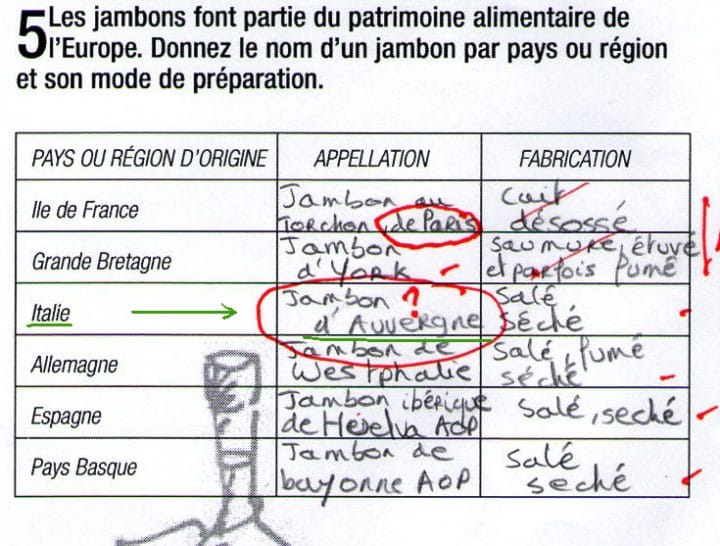 5 Les jambons font partie du patrimoine alimentaire de
l'Europe. Donnez le nom d'un jambon par pays ou région
et son mode de préparation.
PAYS OU RÉGION D'ORIGINE
APPELLATION
FABRICATION
Ile de France
Jambon au
Torchon, de Paris
cuit
désossé
Grande Bretagne
Jambon
d'York
saumure, étuvé
et parfois fumé
Italie
Jambon ?
d'Auvergne
salé
séché
Allemagne
Jambon de
Westphalie
salé, fumé
séché
Espagne
Jambon ibérique
de AOP
salé, seché
Pays Basque
Jambon de
bayonne AOP
salé
seché